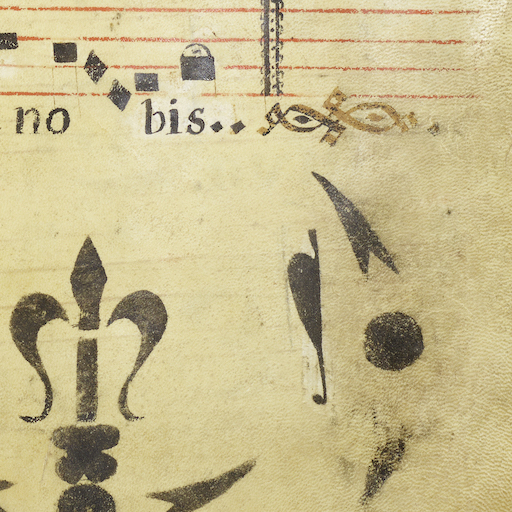 no bis..